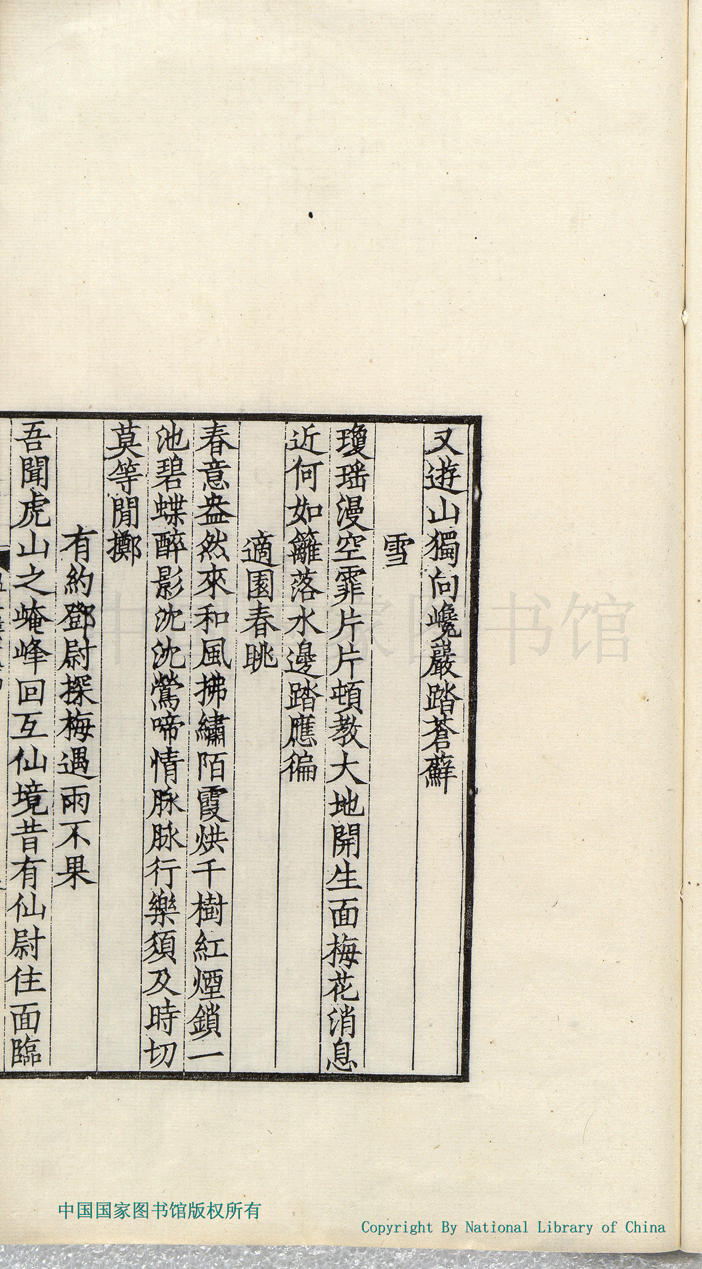 又遊山獨向巉巖踏蒼蘚
雪
瓊瑤漫空霏片片頓教大地開生面梅花消息
近何如籬落水邊踏應徧
適園春眺
春意盎然來和風拂繡陌霞烘千樹紅煙鎖一
池碧蝶醉影沈沈鶯啼情脉脉行樂須及時切
莫等閒擲
有約鄧尉探梅遇雨不果
吾聞虎山之崦峰回互仙境昔有仙尉住面臨
中国国家图书馆版权所有
Copyright By National Library of China